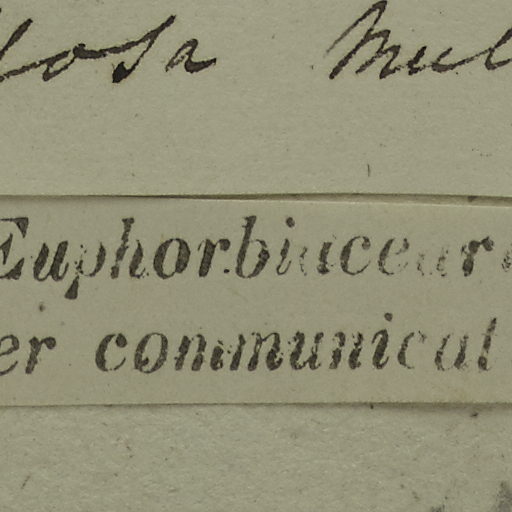 losa Mul
Euphorbiacear
er communicat